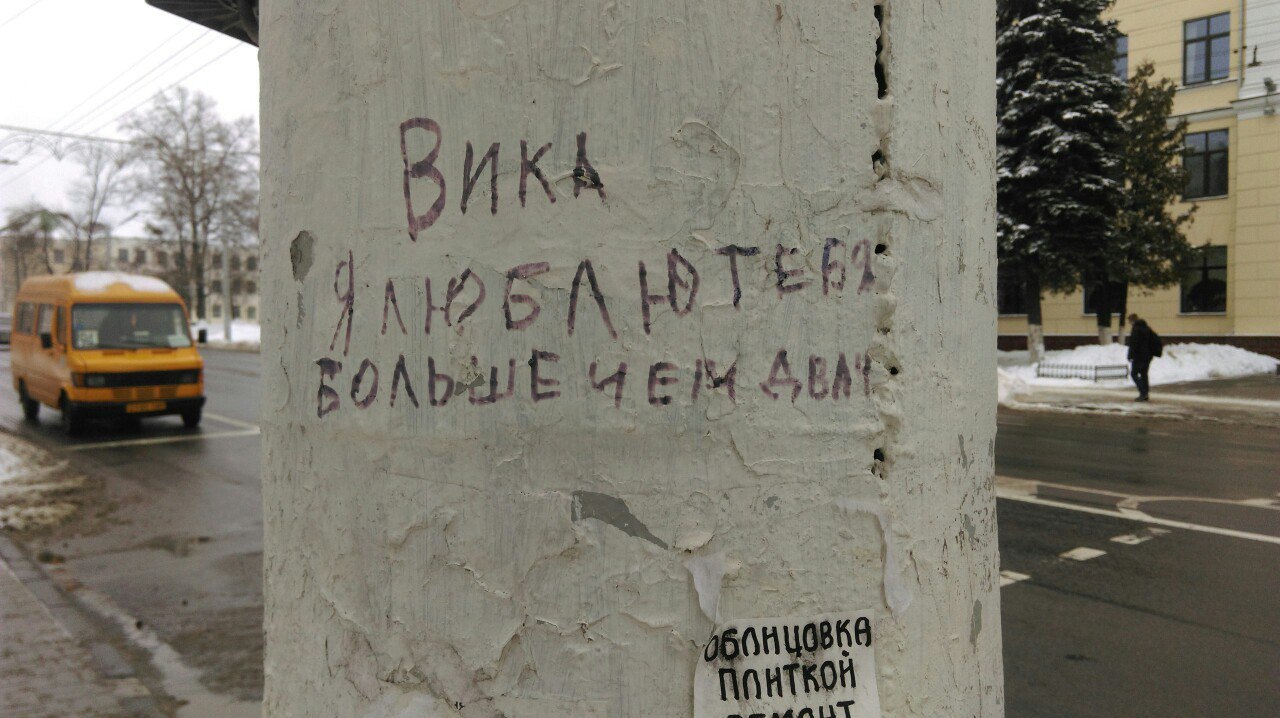 ВИКА
Я ЛЮБЛЮ ТЕБЯ
БОЛЬШЕ ЧЕМ ДВАЧ
ОБЛИЦОВКА
ПЛИТКОЙ
РЕМОНТ